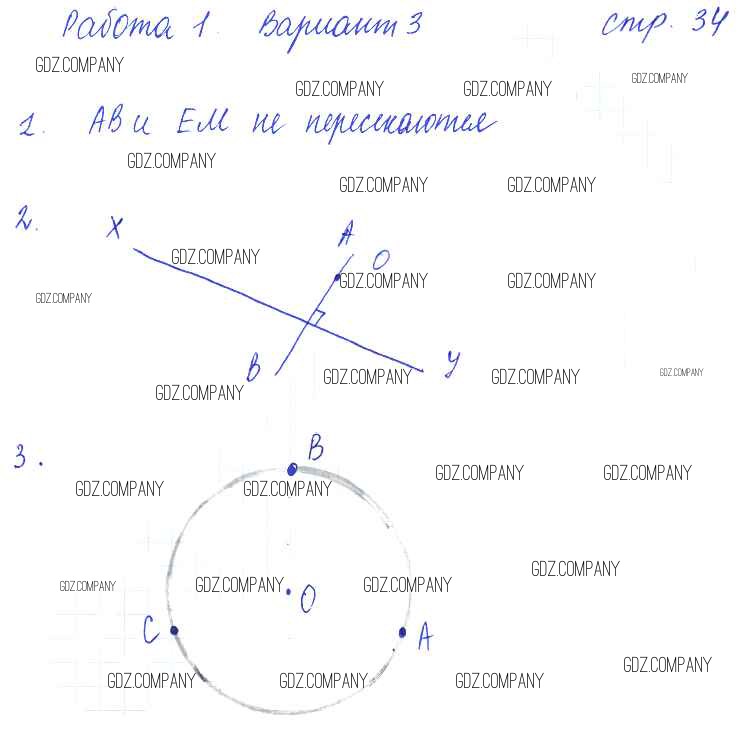 Работа 1. Вариант 3 стр. 34
GDZ.COMPANY
GDZ.COMPANY GDZ.COMPANY GDZ.COMPANY
1. АВ и ЕМ не пересекаются
GDZ.COMPANY
GDZ.COMPANY GDZ.COMPANY
2. X A O
GDZ.COMPANY
GDZ.COMPANY GDZ.COMPANY
GDZ.COMPANY
B У
GDZ.COMPANY GDZ.COMPANY GDZ.COMPANY
GDZ.COMPANY
3. B
GDZ.COMPANY GDZ.COMPANY
GDZ.COMPANY GDZ.COMPANY
GDZ.COMPANY
GDZ.COMPANY GDZ.COMPANY GDZ.COMPANY
O
C A
GDZ.COMPANY
GDZ.COMPANY GDZ.COMPANY GDZ.COMPANY